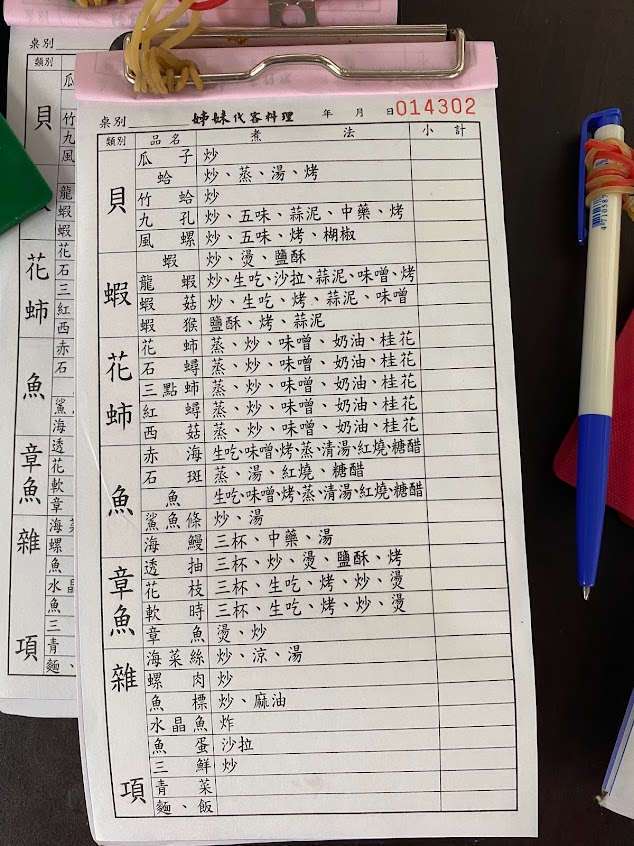 桌別 姊妹代客料理 年 月 日 014302
類別 品名 煮法 小計
貝
瓜子 炒
蛤 炒、蒸、湯、烤
竹蛤 炒
九孔 炒、五味、蒜泥、中藥、烤
風螺 炒、五味、烤、楜椒
蝦
蝦 炒、燙、鹽酥
龍蝦 炒、生吃、沙拉、蒜泥、味噌、烤
蝦菇 炒、生吃、烤、蒜泥、味噌
蝦猴 鹽酥、烤、蒜泥
花蛳
花蛳 蒸、炒、味噌、奶油、桂花
石蟳 蒸、炒、味噌、奶油、桂花
三點蛳 蒸、炒、味噌、奶油、桂花
紅蟳 蒸、炒、味噌、奶油、桂花
西菇 蒸、炒、味噌、奶油、桂花
魚
赤海 生吃、味噌、烤、蒸、清湯、紅燒、糖醋
石斑 蒸、湯、紅燒、糖醋
魚 生吃、味噌、烤、蒸、清湯、紅燒、糖醋
鯊魚條 炒、湯
海鰻 三杯、中藥、湯
章魚
透抽 三杯、炒、燙、鹽酥、烤
花枝 三杯、生吃、烤、炒、燙
軟時 三杯、生吃、烤、炒、燙
章魚 燙、炒
雜項
海菜絲 炒、涼、湯
螺肉 炒
魚標 炒、麻油
水晶魚 炸
魚蛋 沙拉
三鮮 炒
青菜
麵、飯
桌別
類別
貝
瓜
竹
九
風
龍
蝦
蝦
花蛳
花
石
三
紅
西
魚
赤
石
鯊
海
章魚
透
花
軟
章
雜項
海
螺
魚
水晶
魚
三
青
麵、